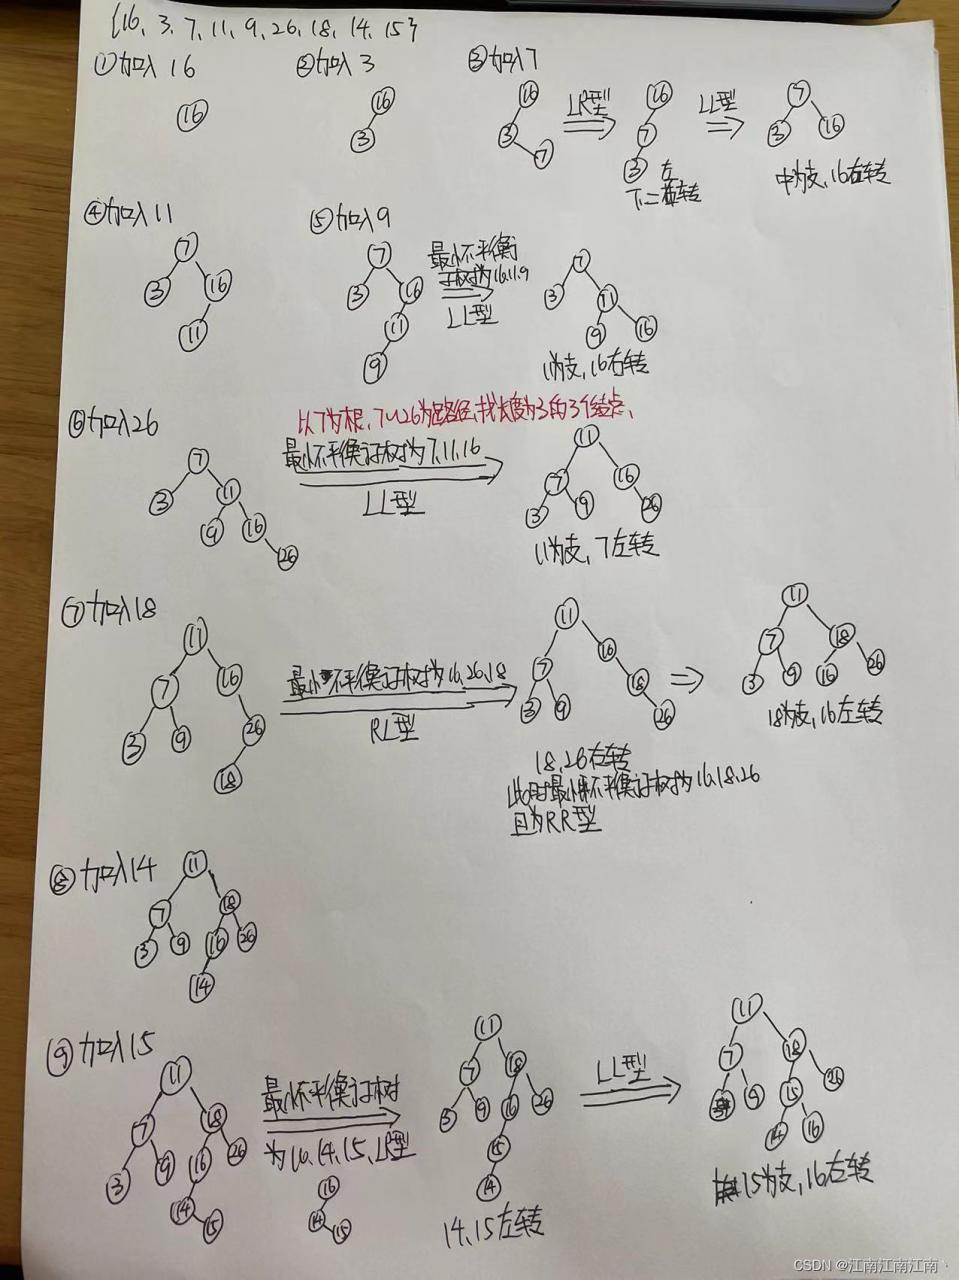 {16、3、7、11、9、26、18、14、15}
①加入16
②加入3
③加入7
16
16
3
16
3
7
LR型
16
7
3
左
下二右转
LL型
7
3
16
中为支，16右转
④加入11
7
3
16
11
⑤加入9
7
3
16
11
9
最小不平衡
子树为16.11.9
LL型
7
3
11
9
16
11为支，16右转
⑥加入26
以7为根，7→26为路径，找长度为3的3个结点、
7
3
11
9
16
26
最小不平衡子树为7.11.16
LL型
11
7
16
3
9
26
11为支，7左转
⑦加入18
11
7
16
3
9
26
18
最小不平衡子树为16.26.18
RL型
11
7
16
3
9
18
26
18.26右转
此时最小不平衡子树为16.18.26
且为RR型
11
7
18
3
9
16
26
18为支，16左转
⑧加入14
11
7
18
3
9
16
26
14
⑨加入15
11
7
18
3
9
16
26
14
15
最小不平衡子树
为16.14.15、LR型
16
14
15
11
7
18
3
9
16
26
15
14
14.15左转
LL型
11
7
18
9
15
26
14
16
15为支，16左转
CSDN @江南江南江南丶